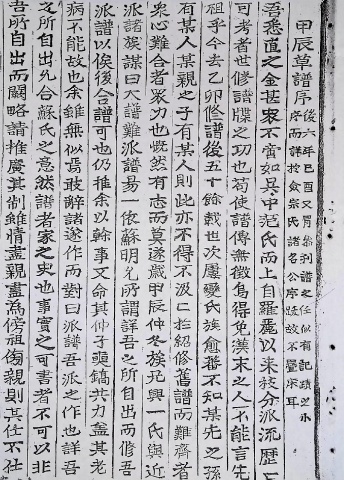 甲辰草譜序
後六年己酉又月條刊譜之任似有記蹟之小
序而詳於僉宗氏諸名公序跋故不疊床耳
吾悉直之金甚衆不啻如吳中范氏而上自羅麗以來枝分派流歷〻
可考者世修譜牒之功也苟使譜傳無徵烏得免漢末之人不能言先
祖乎今去乙卯修譜後五十餘載世次屢變氏族愈番不知某先之孫
有某人某親之子有某人則此亦不得不汲〻於紹修舊譜而難齊者
衆心難合者衆力也慨然有志而莫遂歲甲辰仲冬族兄興一氏與近
派諸族謀曰大譜難派譜易一依蘇明允所謂詳吾之所自出而修吾
派譜以俟後合譜可也仍推余以幹事文命其仲子鎬共力盖其老
病不能故也余雖無似焉敢辭諸遂作而對曰派譜吾派之作也詳吾
之所自出允合蘇氏之意然譜者家之史也事實之可書者不可以非
吾所自出而闕略請推廣其制雖情盡親盡爲傍祖傷親則其任不